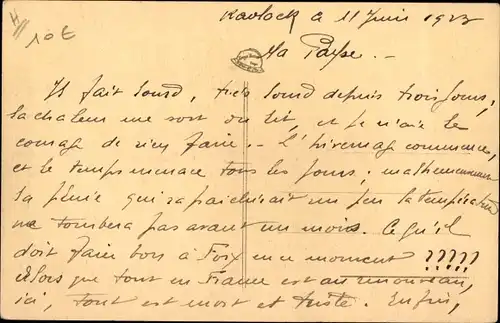 10 €
Kaolack le 11 Juin 1923
Ma Payse. -
Il fait lourd, très lourd depuis trois jours,
la chaleur me sort du lit, et je n'ai le
courage de rien faire. - L'hivernage commence,
et le temps menace tous les jours; malheureusement
la pluie qui rafraichirait un peu la température
ne tombera pas avant un mois. Ce qu'il
doit faire bon à Foix en ce moment ?????
alors que tout en France est au renouveau,
ici, tout est mort et triste. Enfin,